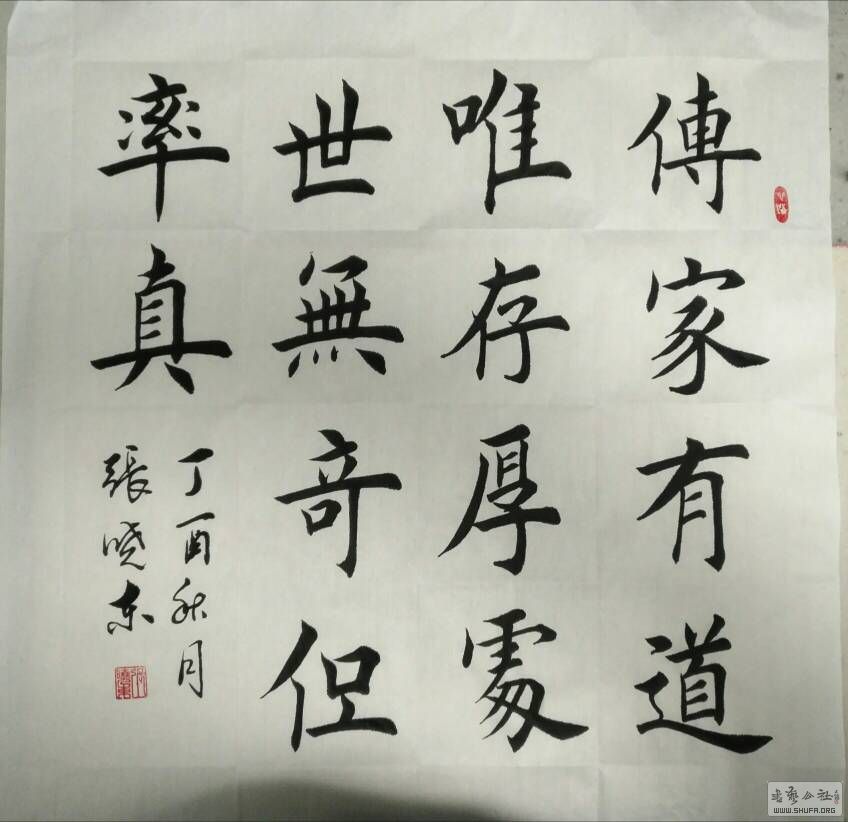 傳家有道
唯存厚處
世無奇但
率真
丁酉秋月
張曉东
WWW.SHUFA.ORG